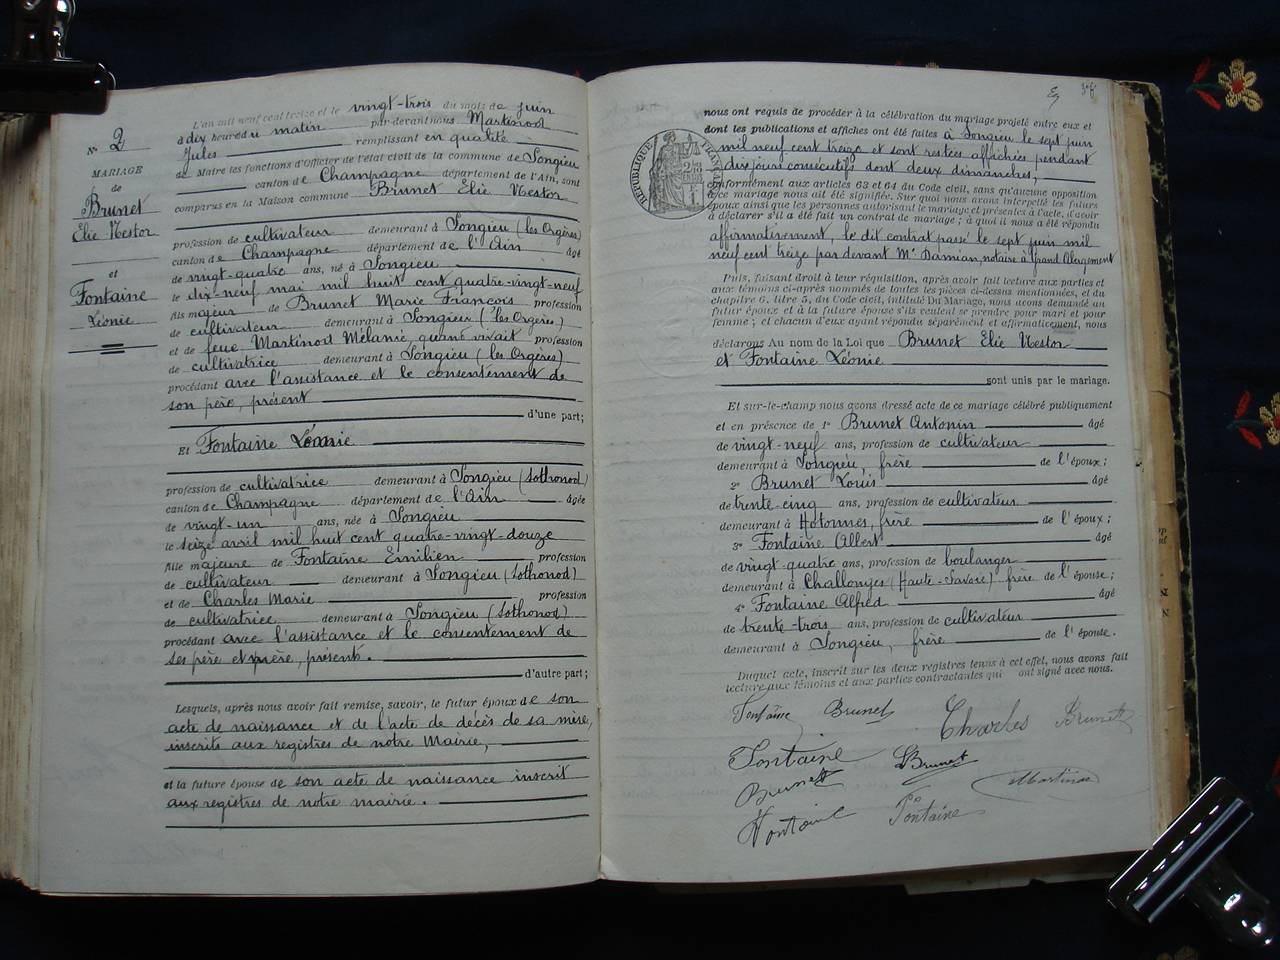 N° 2
MARIAGE
de
Brunet
Elie Nestor
et
Fontaine
Léonie
L'an mil neuf cent treize et le vingt-trois du mois de juin
à dix heures du matin par devant nous Martinod
Jules remplissant en qualité
de Maire les fonctions d'Officier de l'état civil de la commune de Songieu
canton de Champagne département de l'Ain, sont
comparus en la Maison commune Brunet Elie Nestor
profession de cultivateur demeurant à Songieu (les Orgères)
canton de Champagne département de l'Ain âgé
de vingt-quatre ans, né à Songieu
le dix-neuf mai mil huit cent quatre-vingt-neuf
fils majeur de Brunet Marie François profession
de cultivateur demeurant à Songieu (les Orgères)
et de feue Martinod Mélanie, quand vivait profession
de cultivatrice demeurant à Songieu (les Orgères)
procédant avec l'assistance et le consentement de
son père, présent
d'une part;
Et Fontaine Léonie
profession de cultivatrice demeurant à Songieu (Sothonod)
canton de Champagne département de l'Ain âgée
de vingt-un ans, née à Songieu
le seize avril mil huit cent quatre-vingt-douze
fille majeure de Fontaine Emilien profession
de cultivateur demeurant à Songieu (Sothonod)
et de Charles Marie profession
de cultivatrice demeurant à Songieu (Sothonod)
procédant avec l'assistance et le consentement de
ses père et mère, présents.
d'autre part;
Lesquels, après nous avoir fait remise, savoir, le futur époux de son
acte de naissance et de l'acte de décès de sa mère,
inscrits aux registres de notre Mairie,
et la future épouse de son acte de naissance inscrit
aux registres de notre mairie.
nous ont requis de procéder à la célébration du mariage projeté entre eux et
dont les publications et affiches ont été faites à Songieu le sept juin
mil neuf cent treize et sont restées affichées pendant
dix jours consécutifs dont deux dimanches,
RÉPUBLIQUE FRANÇAISE
conformément aux articles 63 et 64 du Code civil, sans qu'aucune opposition
à ce mariage nous ait été signifiée. Sur quoi nous avons interpellé les futurs
époux ainsi que les personnes autorisant le mariage et présentes à l'acte, d'avoir
à déclarer s'il a été fait un contrat de mariage; à quoi il nous a été répondu
affirmativement, le dit contrat passé le sept juin mil
neuf cent treize par devant Me Damian, notaire à Grand Abergement
Puis, faisant droit à leur réquisition, après avoir fait lecture aux parties et
aux témoins ci-après nommés de toutes les pièces ci-dessus mentionnées, et du
chapitre 6, titre 5, du Code civil, intitulé Du Mariage, nous avons demandé au
futur époux et à la future épouse s'ils veulent se prendre pour mari et pour
femme; et chacun d'eux ayant répondu séparément et affirmativement, nous
déclarons Au nom de la Loi que Brunet Elie Nestor
et Fontaine Léonie
sont unis par le mariage.
Et sur-le-champ nous avons dressé acte de ce mariage célébré publiquement
et en présence de 1° Brunet Antonin âgé
de vingt-neuf ans, profession de cultivateur
demeurant à Songieu, frère de l'époux;
2° Brunet Louis âgé
de trente-cinq ans, profession de cultivateur
demeurant à Hotonnes, frère de l'époux;
3° Fontaine Albert âgé
de vingt-quatre ans, profession de boulanger
demeurant à Challonges (Haute-Savoie) frère de l'épouse;
4° Fontaine Alfred âgé
de trente-trois ans, profession de cultivateur
demeurant à Songieu, frère de l'épouse.
Duquel acte, inscrit sur les deux registres tenus à cet effet, nous avons fait
lecture aux témoins et aux parties contractantes qui ont signé avec nous.
Fontaine Brunet Charles Brunet
Fontaine LBrunet
Brunet Martinod
Fontaine Fontaine